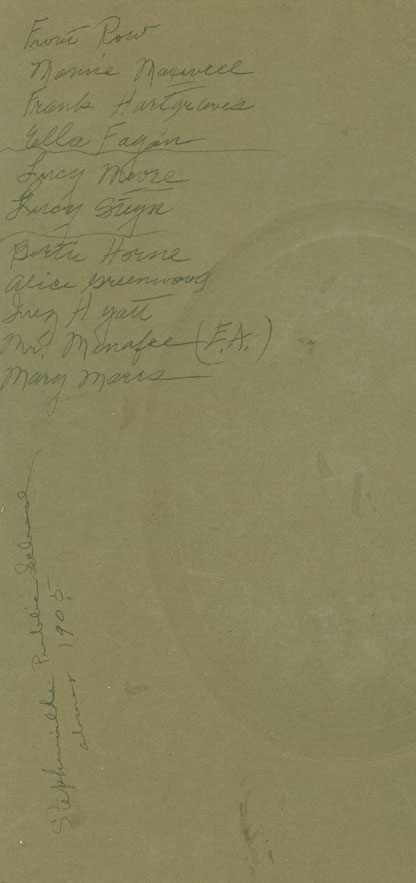 Front Row
Mamie Maxwell
Frank Hartgraves
Ella Fagan
Lucy Moore
Lucy
Horne
Alice Greenwood
Hyatt
Mr. Menafee (F.A.)
Mary
Stephenville Public School
about 1905